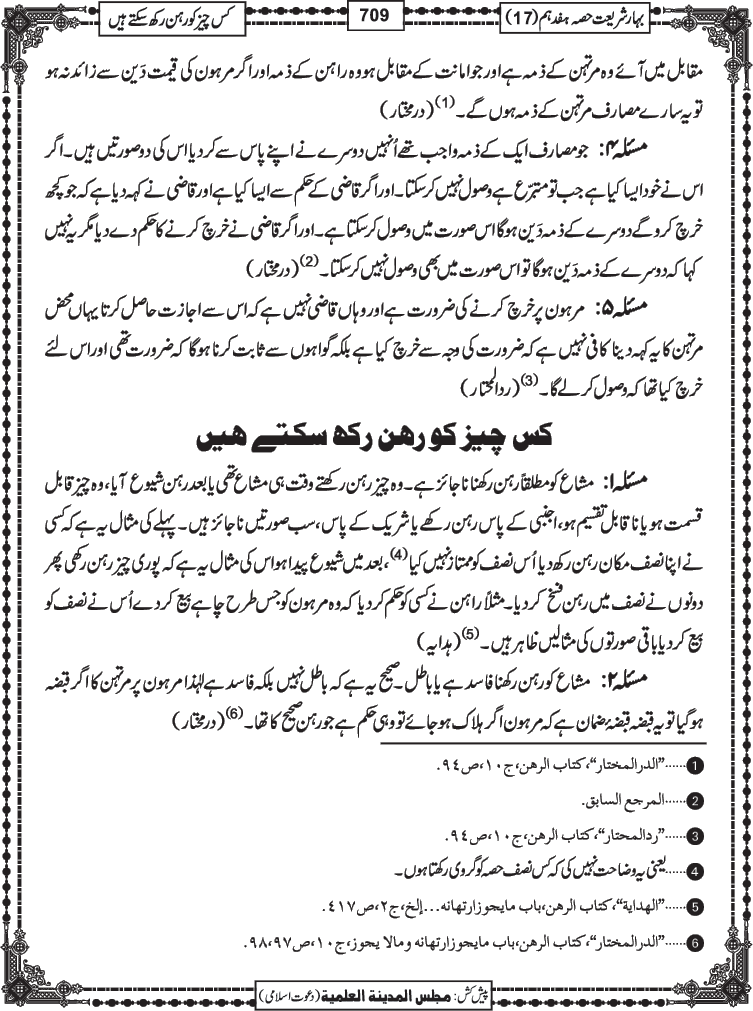 بہار شریعت حصہ ہفدہم (17)
709
کس چیز کو رہن رکھ سکتے ہیں
مقابل میں آئے وہ مرتہن کے ذمہ ہے اور جو امانت کے مقابل ہو وہ راہن کے ذمہ اور اگر مرہون کی قیمت دَین سے زائد نہ ہو
تو یہ سارے مصارف مرتہن کے ذمہ ہوں گے۔(1) (درمختار)
مسئلہ ۴: جو مصارف ایک کے ذمہ واجب تھے اُنہیں دوسرے نے اپنے پاس سے کر دیا اس کی دو صورتیں ہیں۔ اگر
اس نے خود ایسا کیا ہے جب تو متبرّع ہے وصول نہیں کر سکتا۔ اور اگر قاضی کے حکم سے ایسا کیا ہے اور قاضی نے کہہ دیا ہے کہ جو کچھ
خرچ کرو گے دوسرے کے ذمہ دَین ہوگا اس صورت میں وصول کر سکتا ہے۔ اور اگر قاضی نے خرچ کرنے کا حکم دے دیا مگر یہ نہیں
کہا کہ دوسرے کے ذمہ دَین ہوگا تو اس صورت میں بھی وصول نہیں کر سکتا۔(2) (درمختار)
مسئلہ ۵: مرہون پر خرچ کرنے کی ضرورت ہے اور وہاں قاضی نہیں ہے کہ اس سے اجازت حاصل کرتا یہاں محض
مرتہن کا یہ کہہ دینا کافی نہیں ہے کہ ضرورت کی وجہ سے خرچ کیا ہے بلکہ گواہوں سے ثابت کرنا ہوگا کہ ضرورت تھی اور اس لئے
خرچ کیا تھا کہ وصول کرلے گا۔(3) (ردالمحتار)
کس چیز کو رھن رکھ سکتے ھیں
مسئلہ ۱: مشاع کو مطلقاً رہن رکھنا ناجائز ہے۔ وہ چیز رہن رکھتے وقت ہی مشاع تھی یا بعد رہن شیوع آیا، وہ چیز قابل
قسمت ہو یا ناقابل تقسیم ہو، اجنبی کے پاس رہن رکھے یا شریک کے پاس، سب صورتیں ناجائز ہیں۔ پہلے کی مثال یہ ہے کہ کسی
نے اپنا نصف مکان رہن رکھ دیا اُس نصف کو ممتاز نہیں کیا(4)، بعد میں شیوع پیدا ہو اس کی مثال یہ ہے کہ پوری چیز رہن رکھی پھر
دونوں نے نصف میں رہن فسخ کر دیا۔ مثلاً راہن نے کسی کو حکم کر دیا کہ وہ مرہون کو جس طرح چاہے بیع کر دے اُس نے نصف کو
بیع کر دیا باقی صورتوں کی مثالیں ظاہر ہیں۔(5) (ہدایہ)
مسئلہ ۲: مشاع کو رہن رکھنا فاسد ہے یا باطل۔ صحیح یہ ہے کہ باطل نہیں بلکہ فاسد ہے لہٰذا مرہون پر مرتہن کا اگر قبضہ
ہوگیا تو یہ قبضہ قبضۂ ضمان ہے کہ مرہون اگر ہلاک ہوجائے تو وہی حکم ہے جو رہن صحیح کا تھا۔(6) (درمختار)
1 ......"الدرالمختار"،کتاب الرهن،ج۱۰،ص۹٤.
2 ......المرجع السابق.
3 ......"ردالمحتار"،کتاب الرهن،ج۱۰،ص۹٤.
4 ......یعنی یہ وضاحت نہیں کی کہ کس نصف حصہ کو گروی رکھتا ہوں۔
5 ......"الهداية"،کتاب الرهن،باب مایجوزارتهانه...إلخ،ج۲،ص٤۱۷.
6 ......"الدرالمختار"،کتاب الرهن،باب مایجوزارتهانه ومالا یجوز،ج۱۰،ص۹۷،۹۸.
پیش کش: مجلس المدینة العلمیة (دعوت اسلامی)